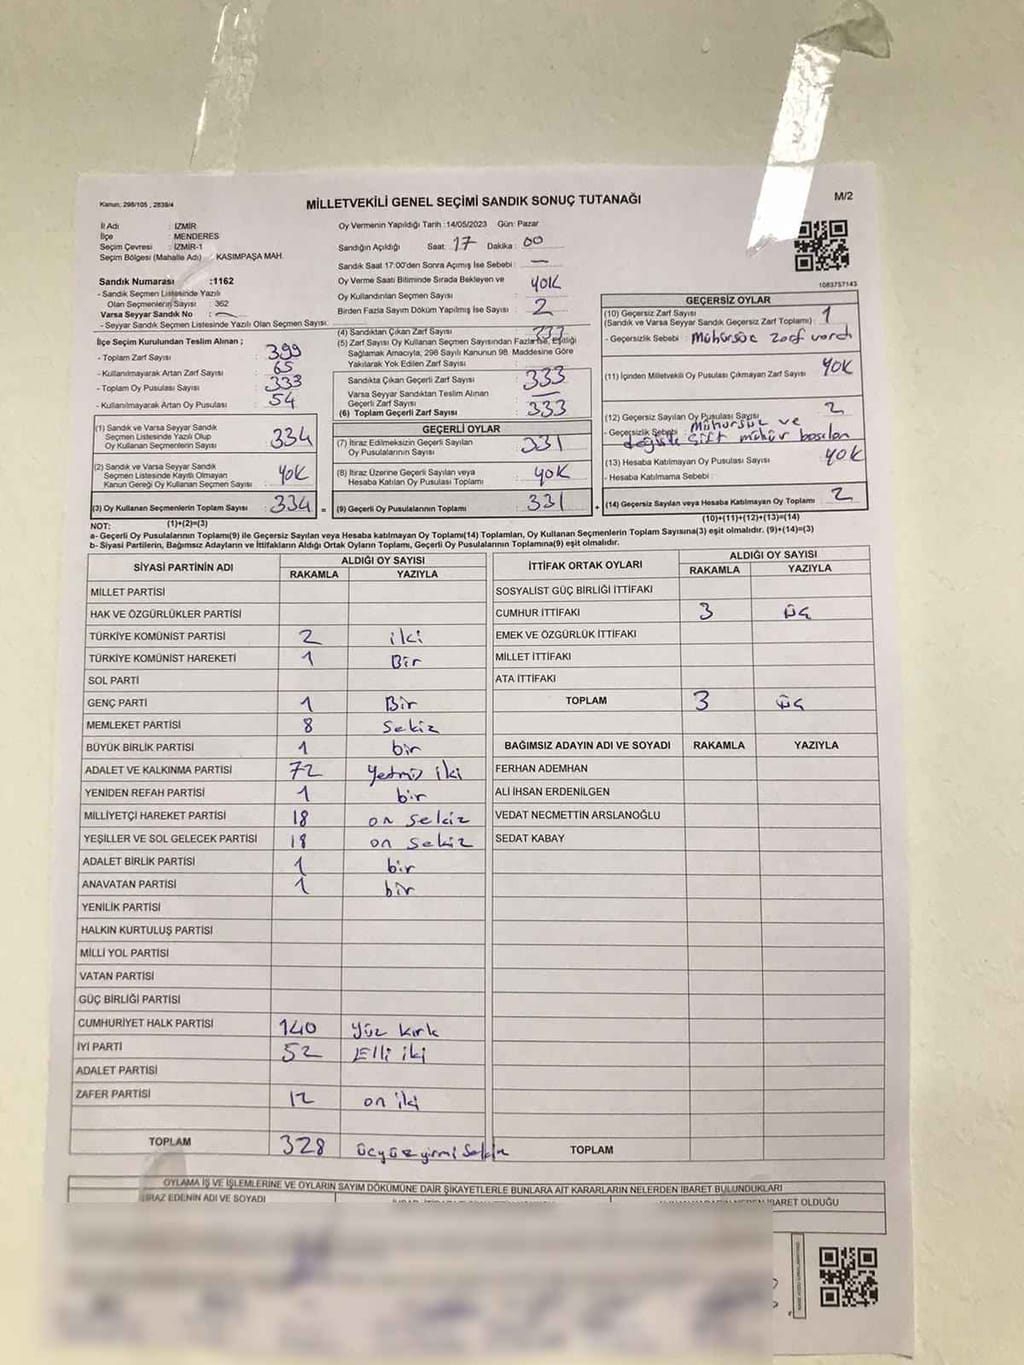 Kanun: 298/105 , 2839/4
MİLLETVEKİLİ GENEL SEÇİMİ SANDIK SONUÇ TUTANAĞI
M/2
İl Adı : İZMİR
İlçe : MENDERES
Seçim Çevresi : İZMİR-1
Seçim Bölgesi (Mahalle Adı) : KASIMPAŞA MAH.
Sandık Numarası :1162
- Sandık Seçmen Listesinde Yazılı
Olan Seçmenlerin Sayısı : 362
Varsa Seyyar Sandık No :
- Seyyar Sandık Seçmen Listesinde Yazılı Olan Seçmen Sayısı:
Oy Vermenin Yapıldığı Tarih :14/05/2023 Gün: Pazar
Sandığın Açıldığı Saat: 17 Dakika : 00
Sandık Saat 17:00'den Sonra Açılmış İse Sebebi : —
Oy Verme Saati Bitiminde Sırada Bekleyen ve
Oy Kullandırılan Seçmen Sayısı : YOK
Birden Fazla Sayım Döküm Yapılmış İse Sayısı : 2
1083757143
İlçe Seçim Kurulundan Teslim Alınan ;
- Toplam Zarf Sayısı : 399
- Kullanılmayarak Artan Zarf Sayısı : 65
- Toplam Oy Pusulası Sayısı : 333
- Kullanılmayarak Artan Oy Pusulası : 54
(1) Sandık ve Varsa Seyyar Sandık
Seçmen Listesinde Yazılı Olup
Oy Kullanan Seçmenlerin Sayısı 334
(2) Sandık ve Varsa Seyyar Sandık
Seçmen Listesinde Kayıtlı Olmayan
Kanun Gereği Oy Kullanan Seçmen Sayısı YOK
(3) Oy Kullanan Seçmenlerin Toplam Sayısı 334 =
(1)+(2)=(3)
(4) Sandıktan Çıkan Zarf Sayısı : 333
(5) Zarf Sayısı Oy Kullanan Seçmen Sayısından Fazla İse, Eşitliği
Sağlamak Amacıyla, 298 Sayılı Kanunun 98. Maddesine Göre
Yakılarak Yok Edilen Zarf Sayısı :
Sandıkta Çıkan Geçerli Zarf Sayısı : 333
Varsa Seyyar Sandıktan Teslim Alınan
Geçerli Zarf Sayısı :
(6) Toplam Geçerli Zarf Sayısı : 333
GEÇERLİ OYLAR
(7) İtiraz Edilmeksizin Geçerli Sayılan
Oy Pusulalarının Sayısı : 331
(8) İtiraz Üzerine Geçerli Sayılan veya
Hesaba Katılan Oy Pusulası Toplamı : YOK
(9) Geçerli Oy Pusulalarının Toplamı : 331 +
GEÇERSİZ OYLAR
(10) Geçersiz Zarf Sayısı
(Sandık ve Varsa Seyyar Sandık Geçersiz Zarf Toplamı) : 1
- Geçersizlik Sebebi : Mühürsüz zarf vardı
(11) İçinden Milletvekili Oy Pusulası Çıkmayan Zarf Sayısı YOK
(12) Geçersiz Sayılan Oy Pusulası Sayısı 2
- Geçersizlik Sebebi : Mühürsüz ve
çift mühür basılan
(13) Hesaba Katılmayan Oy Pusulası Sayısı YOK
- Hesaba Katılmama Sebebi :
(14) Geçersiz Sayılan veya Hesaba Katılmayan Oy Toplamı 2
(10)+(11)+(12)+(13)=(14)
NOT:
a- Geçerli Oy Pusulalarının Toplamı(9) ile Geçersiz Sayılan veya Hesaba katılmayan Oy Toplamı(14) Toplamları, Oy Kullanan Seçmenlerin Toplam Sayısına(3) eşit olmalıdır. (9)+(14)=(3)
b- Siyasi Partilerin, Bağımsız Adayların ve İttifakların Aldığı Ortak Oyların Toplamı, Geçerli Oy Pusulalarının Toplamına(9) eşit olmalıdır.
SİYASİ PARTİNİN ADI ALDIĞI OY SAYISI
RAKAMLA YAZIYLA
MİLLET PARTİSİ
HAK VE ÖZGÜRLÜKLER PARTİSİ
TÜRKİYE KOMÜNİST PARTİSİ 2 iki
TÜRKİYE KOMÜNİST HAREKETİ 1 Bir
SOL PARTİ
GENÇ PARTİ 1 Bir
MEMLEKET PARTİSİ 8 sekiz
BÜYÜK BİRLİK PARTİSİ 1 bir
ADALET VE KALKINMA PARTİSİ 72 yetmiş iki
YENİDEN REFAH PARTİSİ 1 bir
MİLLİYETÇİ HAREKET PARTİSİ 18 on sekiz
YEŞİLLER VE SOL GELECEK PARTİSİ 18 on sekiz
ADALET BİRLİK PARTİSİ 1 bir
ANAVATAN PARTİSİ 1 bir
YENİLİK PARTİSİ
HALKIN KURTULUŞ PARTİSİ
MİLLİ YOL PARTİSİ
VATAN PARTİSİ
GÜÇ BİRLİĞİ PARTİSİ
CUMHURİYET HALK PARTİSİ 140 yüz kırk
İYİ PARTİ 52 Elli iki
ADALET PARTİSİ
ZAFER PARTİSİ 12 on iki
TOPLAM 328 üçyüzyirmi sekiz
İTTİFAK ORTAK OYLARI ALDIĞI OY SAYISI
RAKAMLA YAZIYLA
SOSYALİST GÜÇ BİRLİĞİ İTTİFAKI
CUMHUR İTTİFAKI 3 üç
EMEK VE ÖZGÜRLÜK İTTİFAKI
MİLLET İTTİFAKI
ATA İTTİFAKI
TOPLAM 3 üç
BAĞIMSIZ ADAYIN ADI VE SOYADI RAKAMLA YAZIYLA
FERHAN ADEMHAN
ALİ İHSAN ERDENİLGEN
VEDAT NECMETTİN ARSLANOĞLU
SEDAT KABAY
TOPLAM
OYLAMA İŞ VE İŞLEMLERİNE VE OYLARIN SAYIM DÖKÜMÜNE DAİR ŞİKAYETLERLE BUNLARA AİT KARARLARIN NELERDEN İBARET BULUNDUKLARI
İTİRAZ EDENİN ADI VE SOYADI
İBARET OLDUĞU